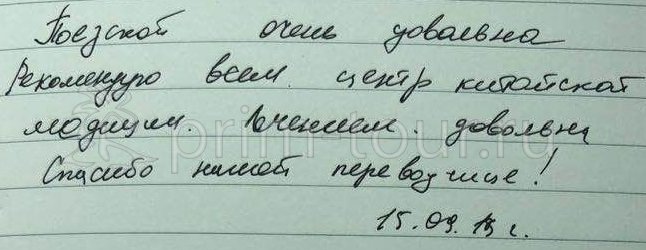 Поездкой очень довольна
Рекомендую всем центр китайской
медицин. Лечением довольна
Спасибо нашей переводчице!
15.09.19 г.
prim-tour.ru